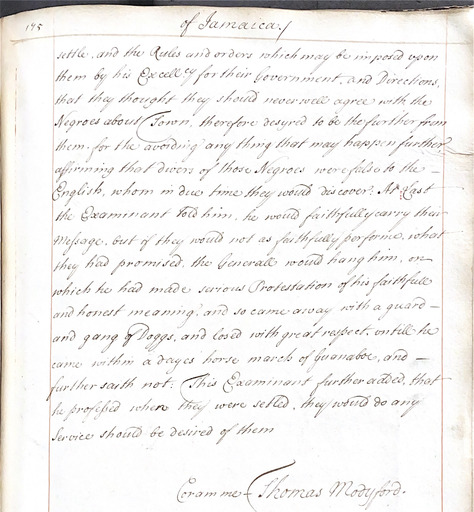 195
of Jamaica /
settle, and the Rules and orders which may be imposed upon
them by his Excellcy for their Government, and Directions,
that they thought they should never well agree with the
Negroes about Town, therefore desyred to be the further from
them, for the avoiding any thing that may happen further
affirming that divers of those Negroes were false to the –
English, whom in due time they would discover. At Last
the Examinant told him, he would faithfully carry their
Message, but if they would not as faithfully performe, what
they had promised, the Generall would hang him, on
which he had made serious Protestation of his faithfull
and honest meaning, and so came away with a guard –
and gang of Doggs, and with great respect, untill he
came within a dayes horse march of Guanaboe, and –
further saith not. This Examinant further added, that
he professed where they were setled, they would do any
Service should be desired of them
Coram me Thomas Modyford.